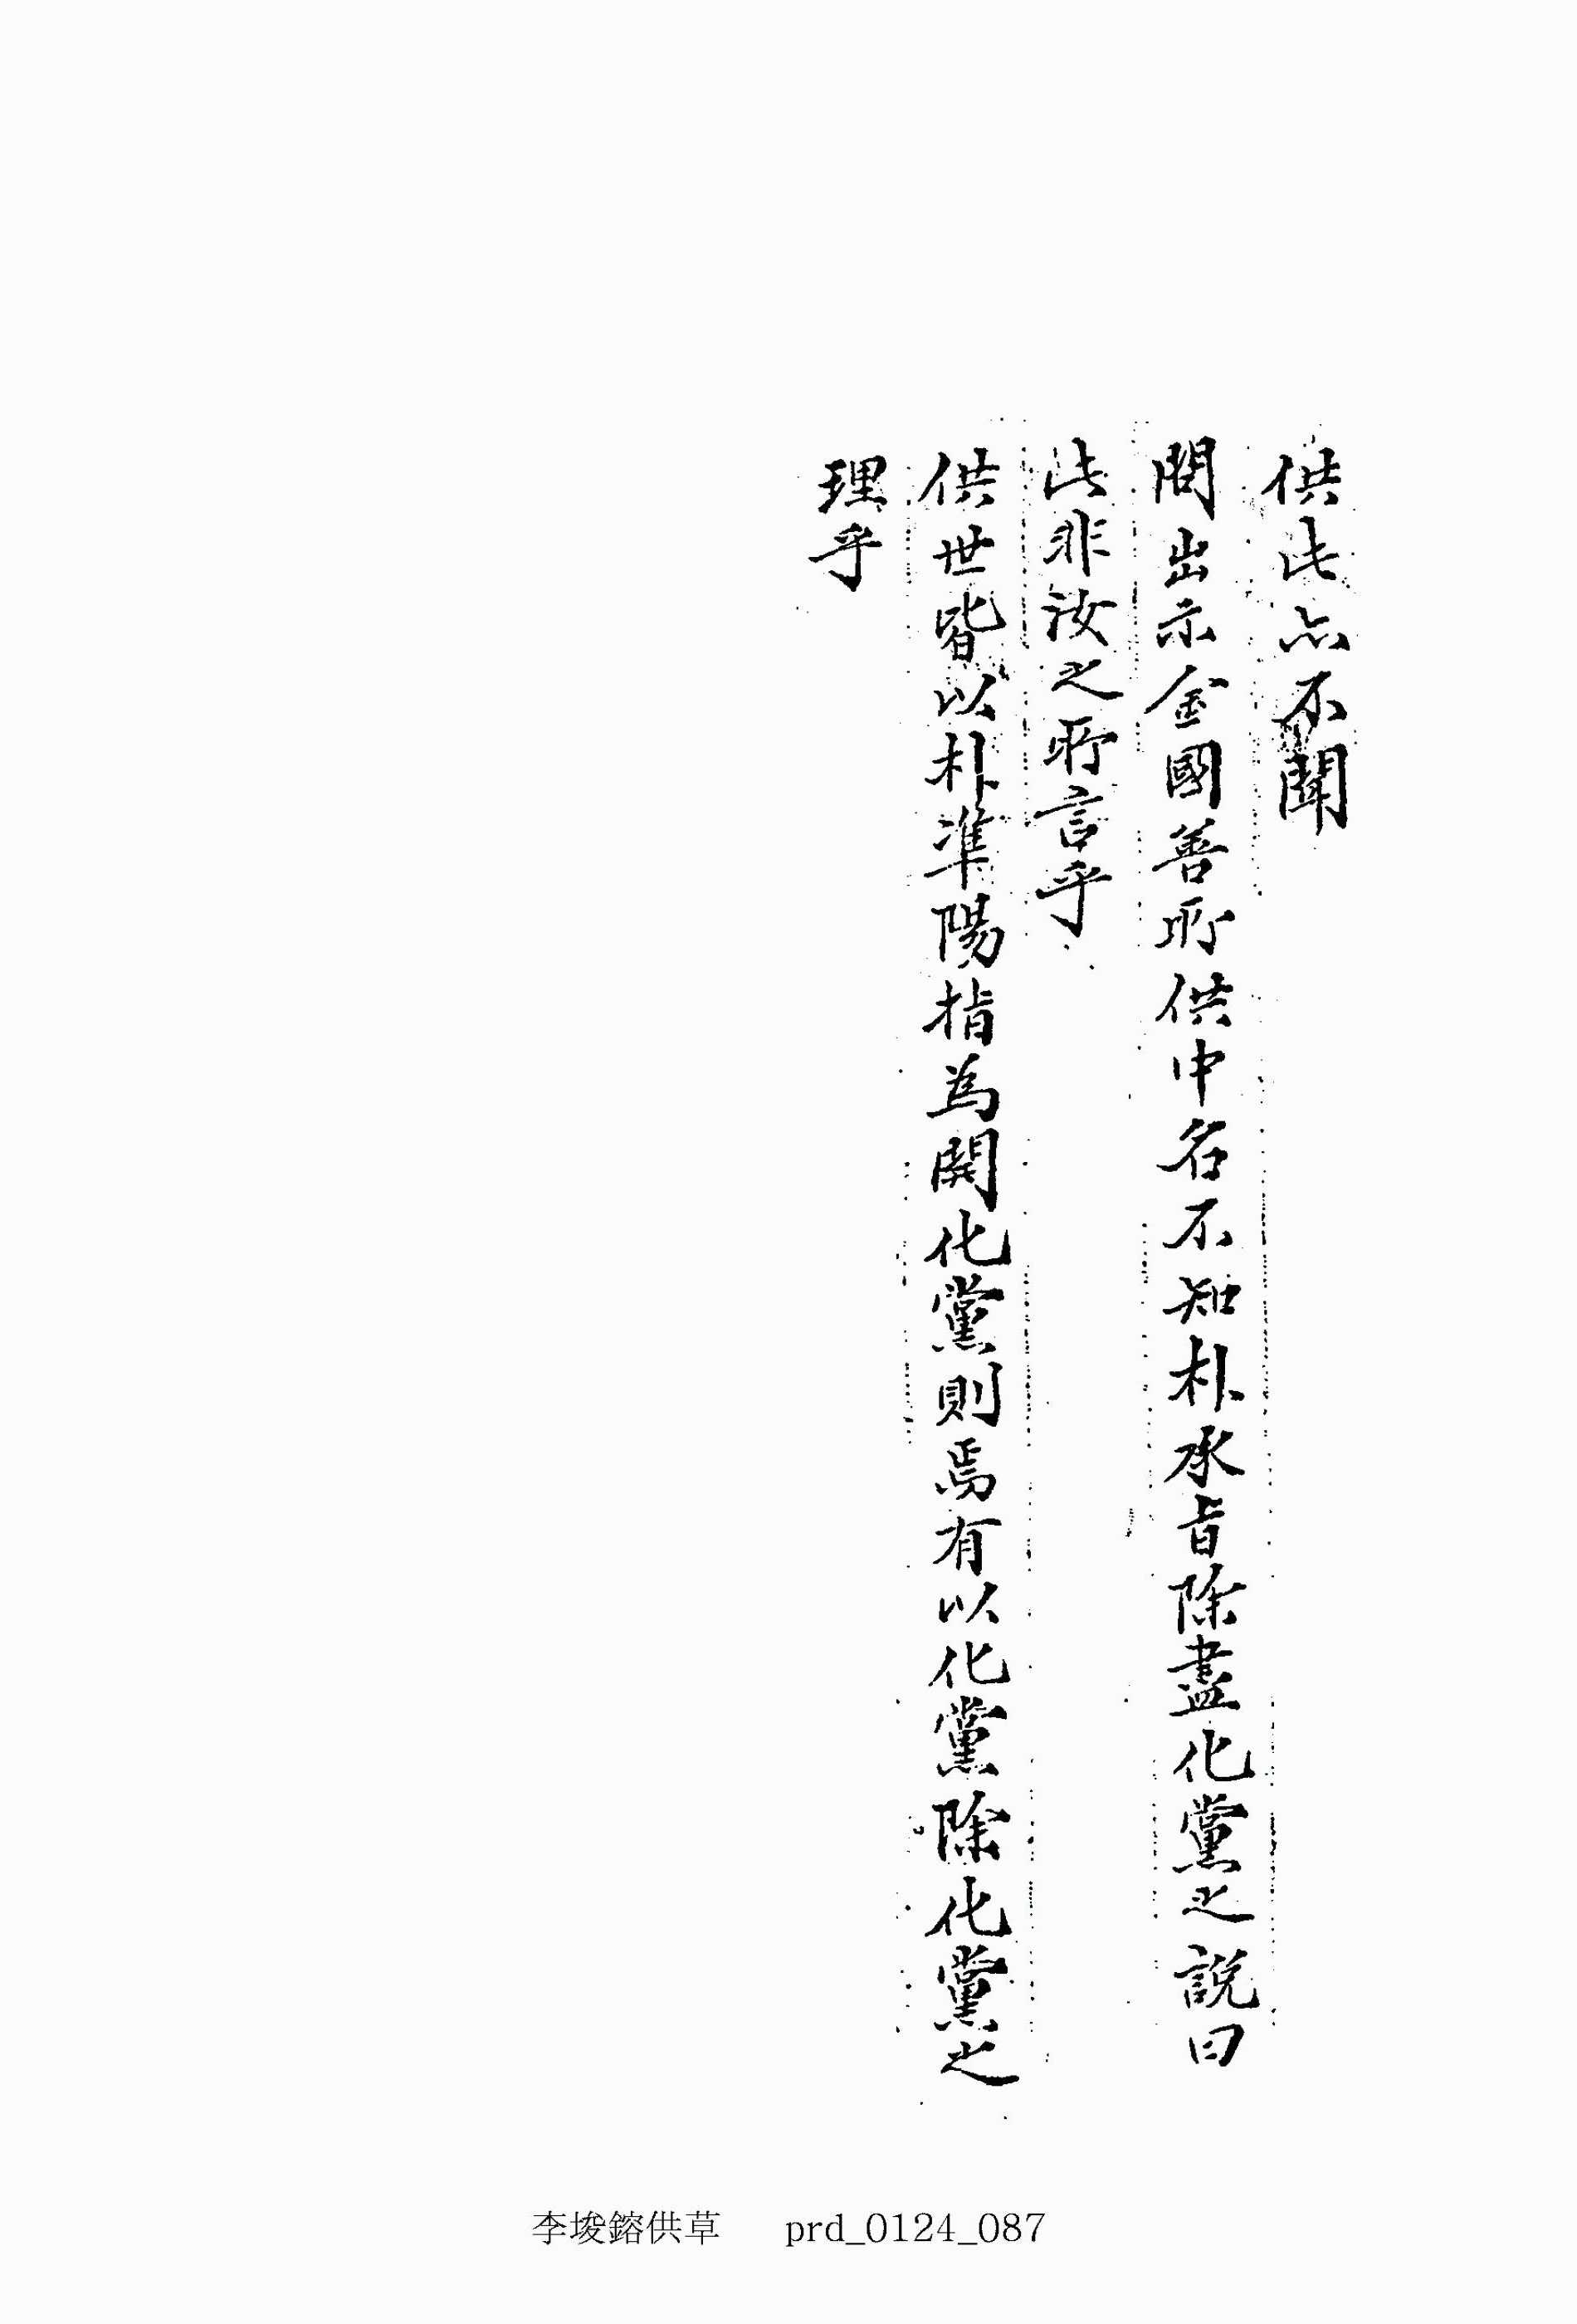 供此亦不聞
問出示金國善所供中名不知朴承旨除盡化黨之說曰
此非汝之所言乎
供世皆以朴準陽指為開化黨則焉有以化黨除化黨之
理乎
李埈鎔供草 prd_0124_087